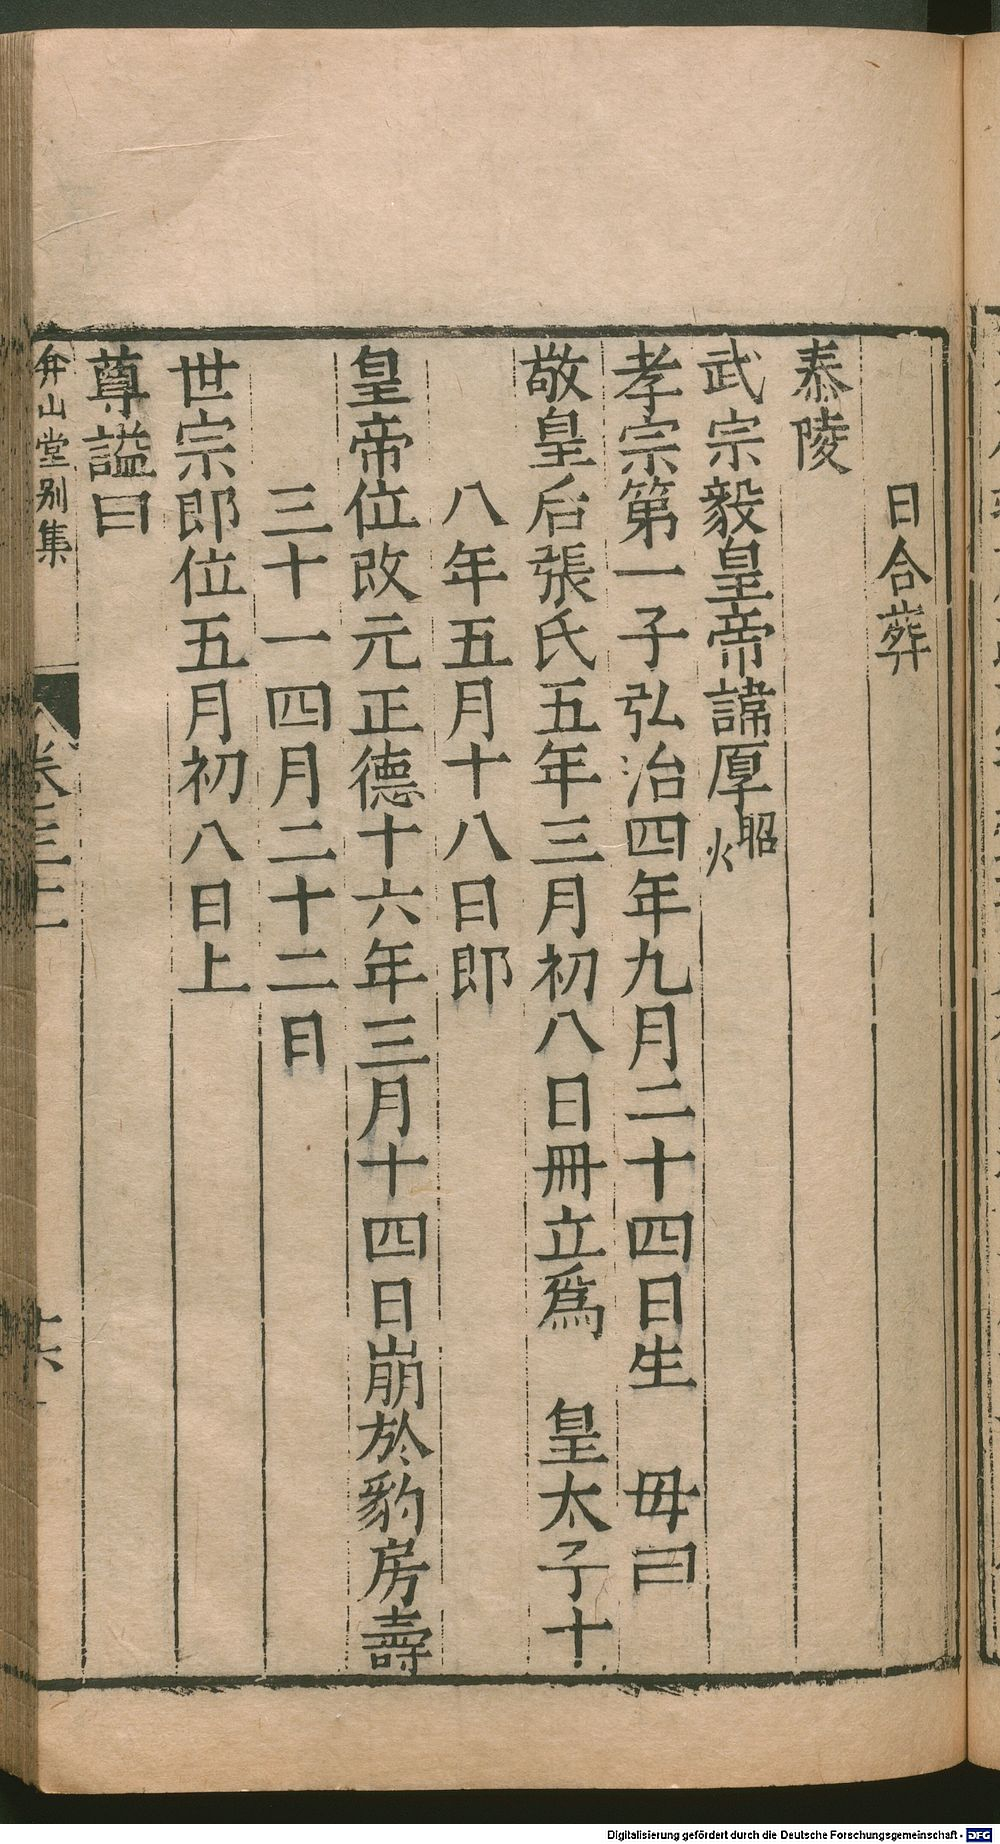 日合葬
泰陵
武宗毅皇帝諱厚
昭火
孝宗第一子弘治四年九月二十四日生 毋曰
敬皇后張氏五年三月初八日冊立爲 皇太子十
八年五月十八日郎
皇帝位改元正德十六年三月十四日崩於豹房壽
三十一四月二十二日
世宗郎位五月初八日上
尊謚曰
弇山堂别集
卷三十一
十六
Digitalisierung gefördert durch die Deutsche Forschungsgemeinschaft - DFG